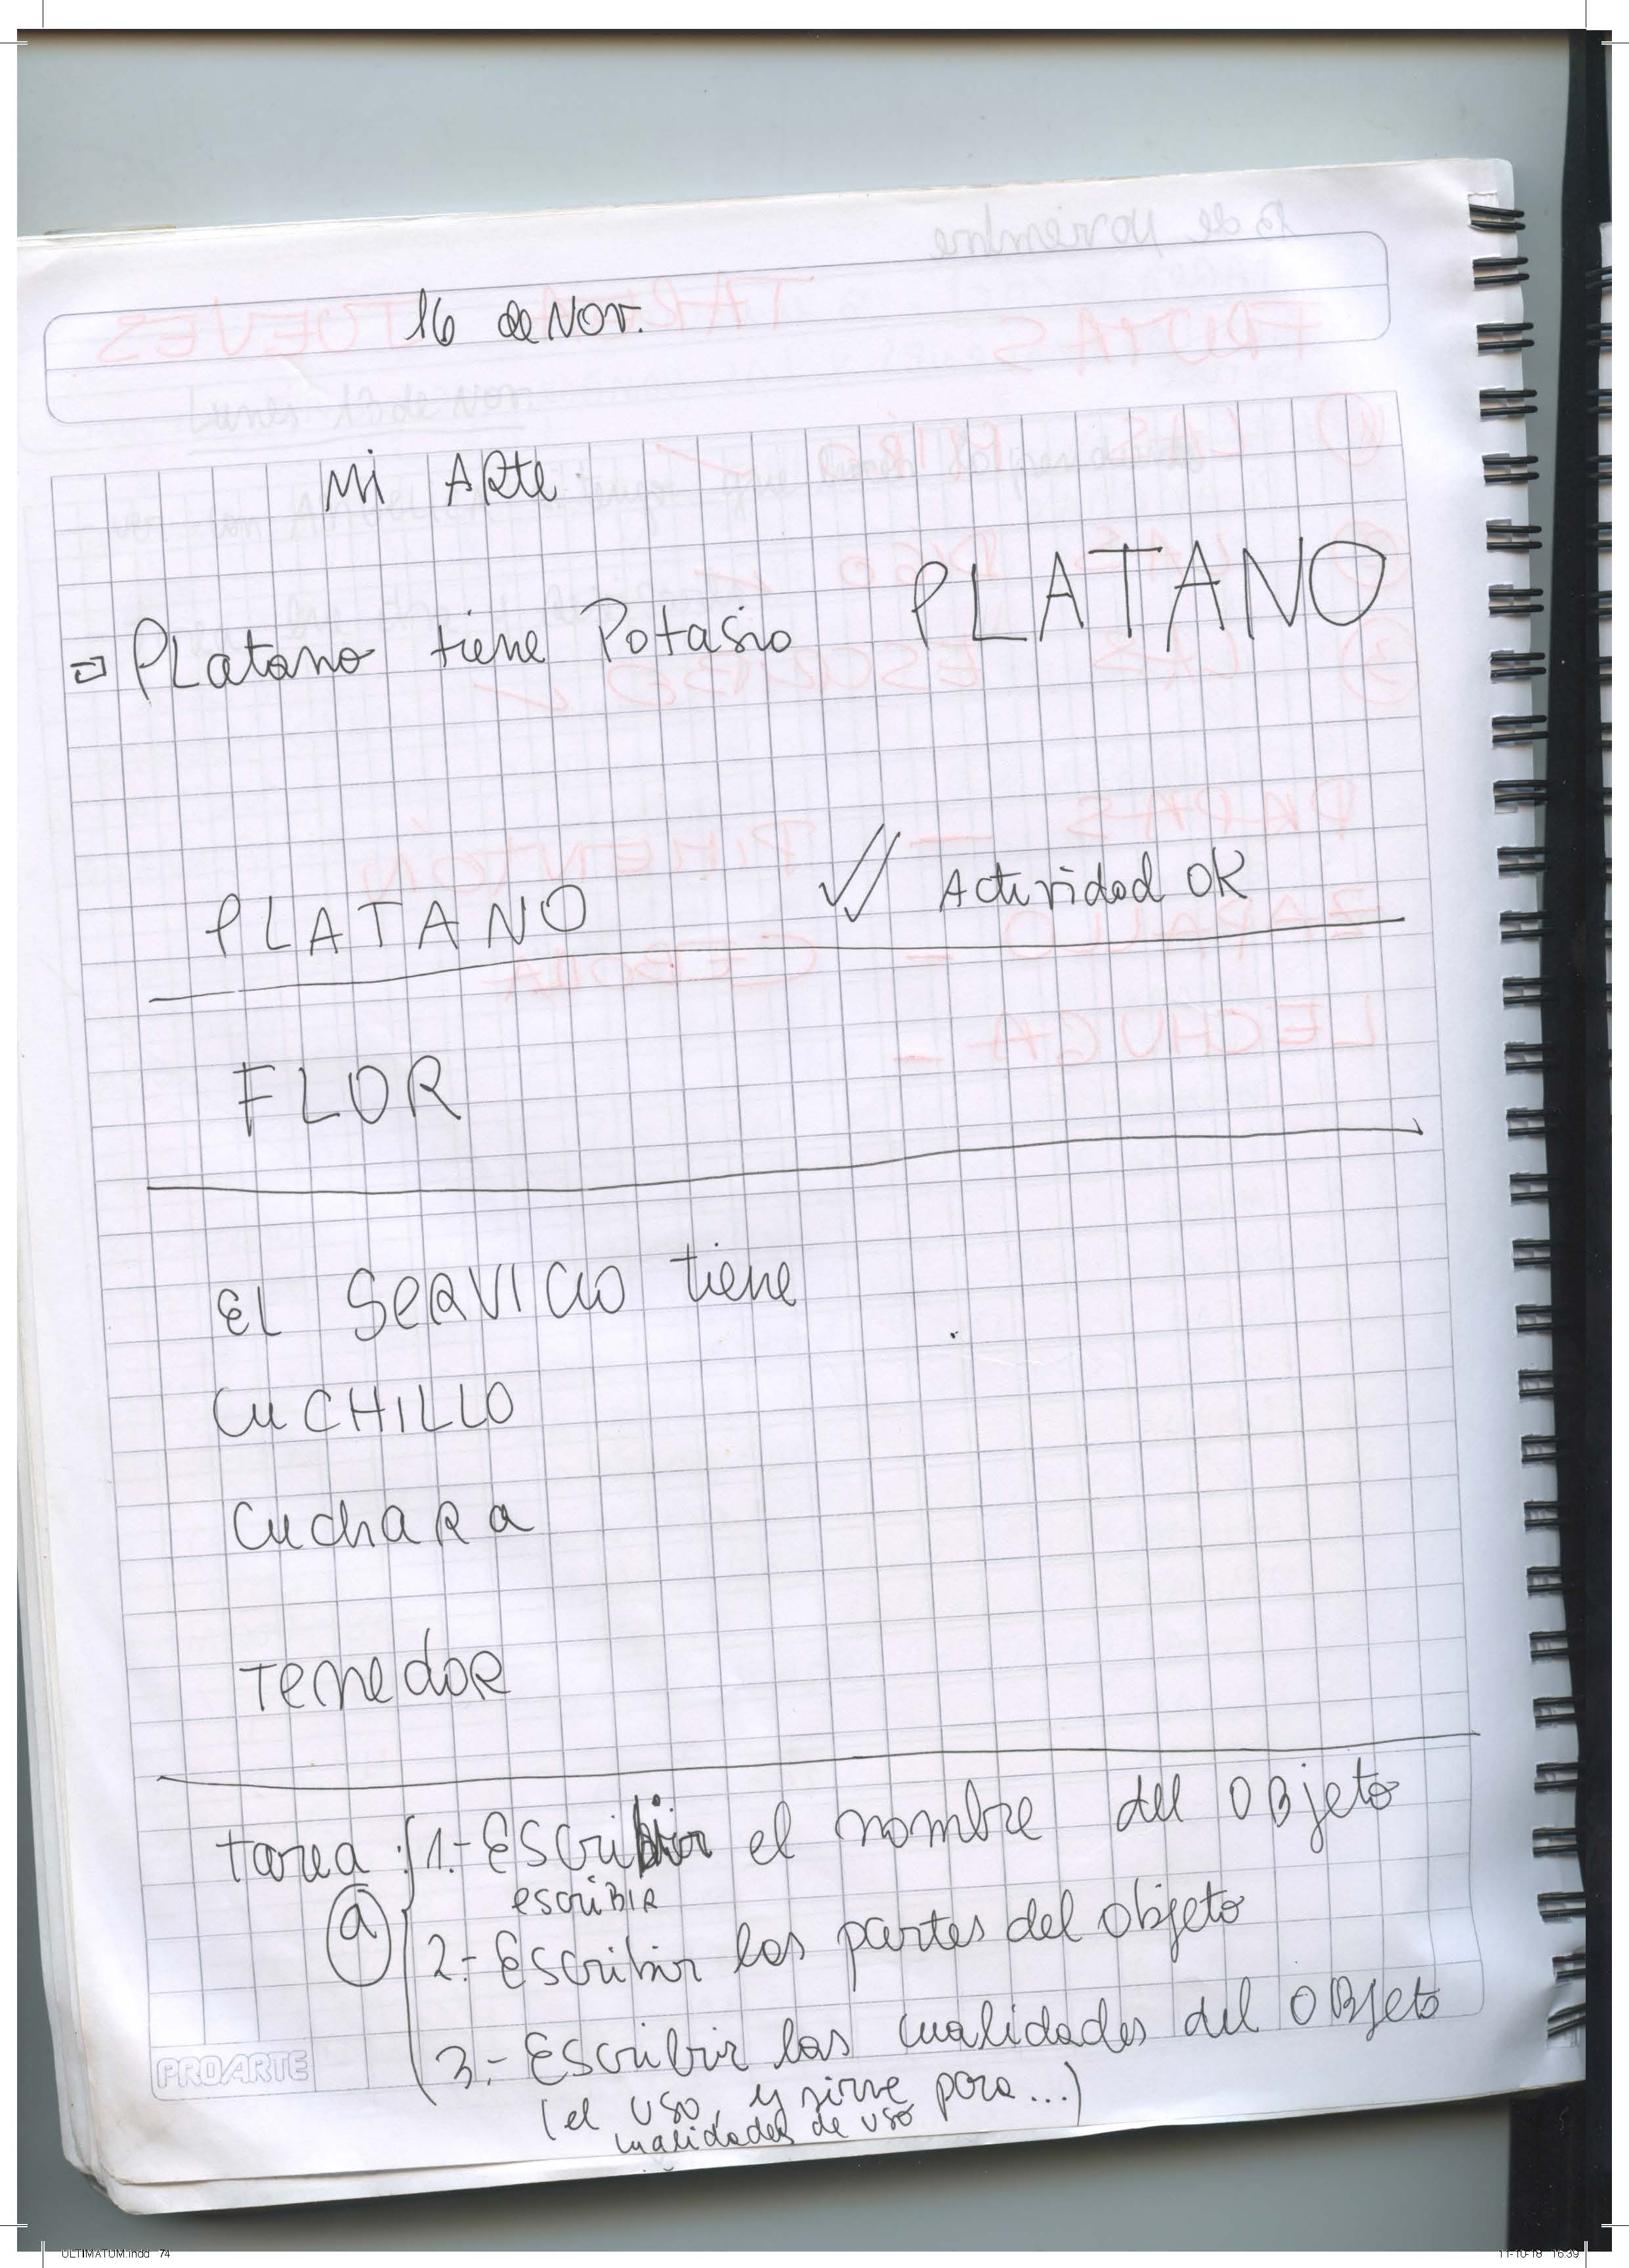 16 de Nov.
Mi ARte
PLatano tiene Potasio PLATANO
PLATANO Actividad OK
FLOR
EL SeRVICIO tiene
CuCHILLO
CuchaRa
TenedoR
tarea: 1.- Escribir el nombre del OBjeto
escriBIR
a
2.- Escribir las partes del objeto
3.- Escribir las cualidades del OBjeto
(el uso, y sirve para...)
cualidades de uso
PROARTE
ULTIMATUM.indd 74 11-10-18 16:39